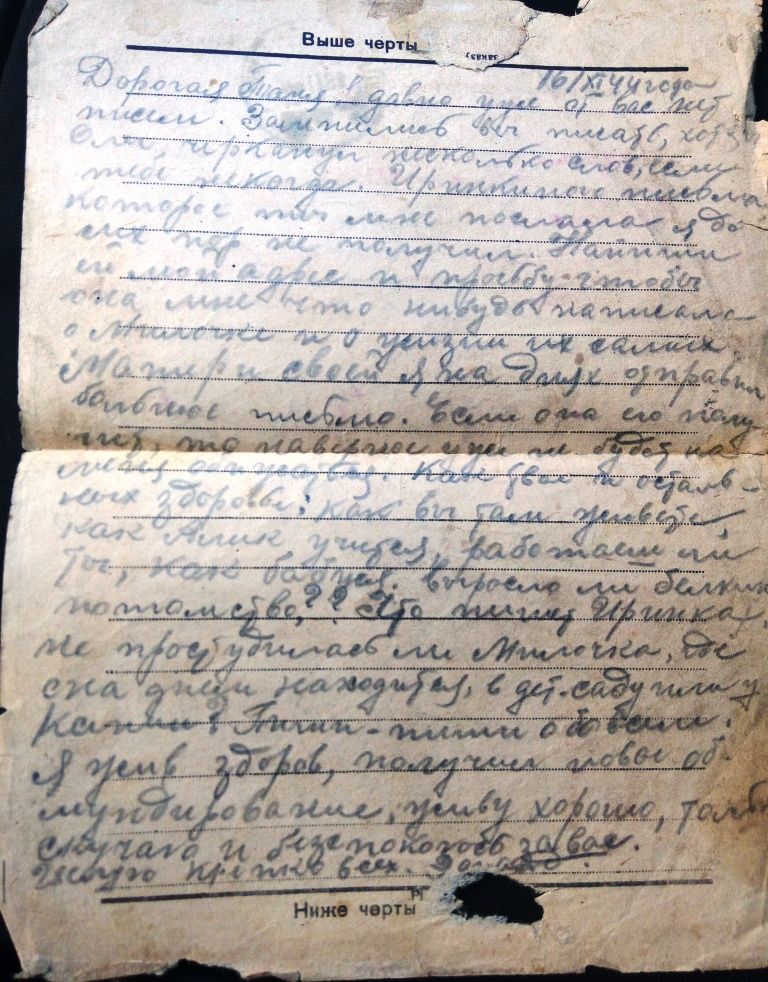 Выше черты
заказ,
16/XI 44 года
Дорогая Таня! давно уже от вас нет
писем. Заленились вы писать, хотя
бы черканул несколько слов, если
тебе некогда. Иринкиного письма,
которое ты мне послала я до
сих пор не получил. Напиши
ей мой адрес и просьбу чтобы
она мне что нибудь написала
о Милочке и о жизни их самих.
Матери своей я на днях отправил
большое письмо. Если она его полу-
чит, то наверное уже не будет на
меня обижаться. Как твое и осталь-
ных здоровье; как вы там живете,
как Алик учится, работаешь ли
ты, как бабуся. выросло ли белкино
потомство?? Что пишет Иринка,
не простудилась ли Милочка, где
она днем находится, в дет. саду или у
Пиши-пиши обо всем.
Я жив здоров, получил новое об-
мундирование, живу хорошо, только
скучаю и безспокоюсь за вас.
Целую крепко всех.
Ниже черты